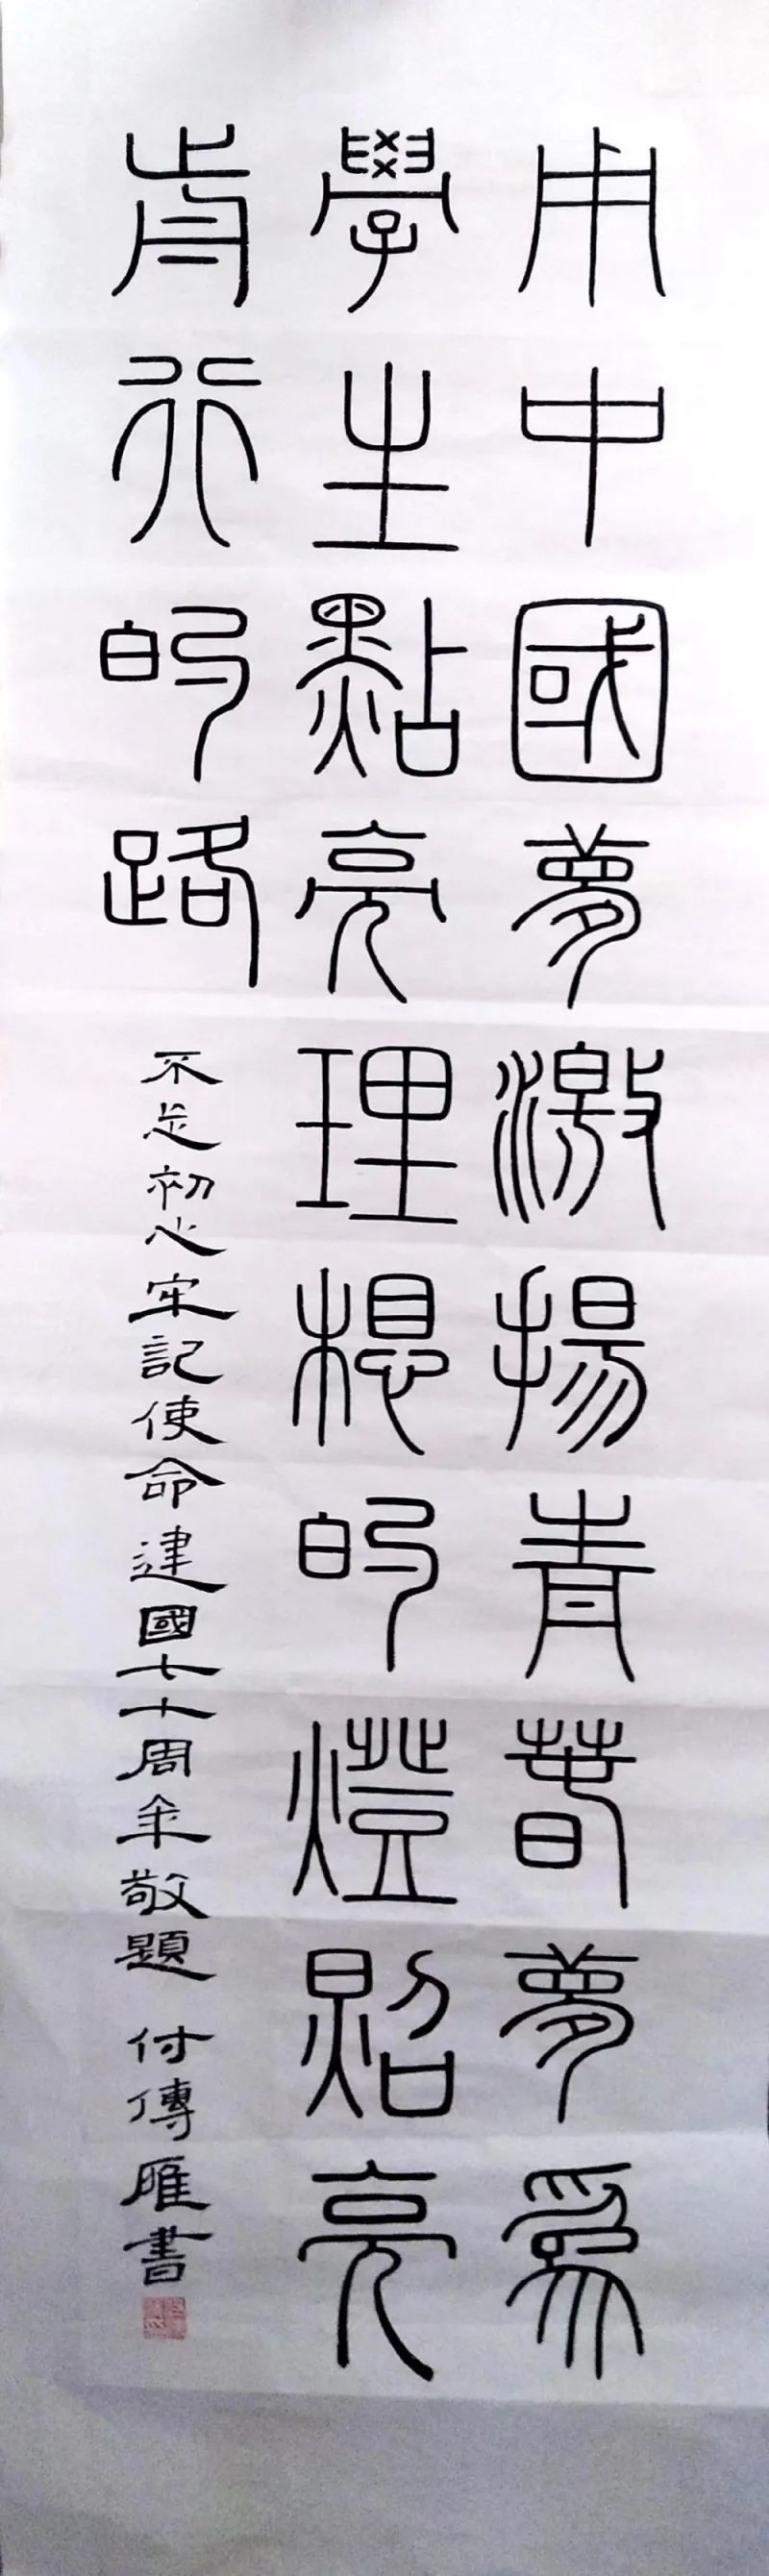 用中國夢激揚青春夢爲
學生點亮理想的燈照亮
前行的路
不忘初心牢記使命建國七十周年敬題 付傳雁書